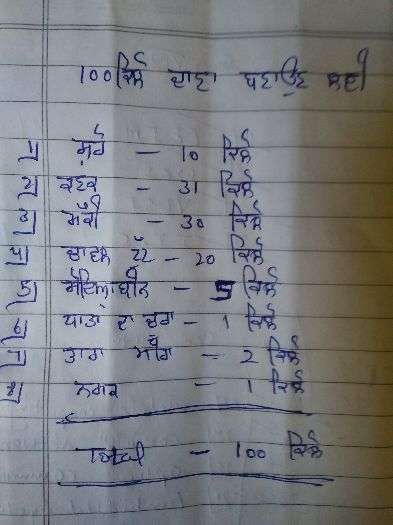 100 ਕਿਲੋ ਦਾਣਾ ਬਣਾਉਣ ਲਈ
1] - 10 ਕਿਲੋ
2] ਕਣਕ - 31 ਕਿਲੋ
3] ਮੱਕੀ - 30 ਕਿਲੋ
4] ਚਾਵਲ - 20 ਕਿਲੋ
5] ਸੋਇਆਬੀਨ - 5 ਕਿਲੋ
6] ਦਾ - 1 ਕਿਲੋ
7] ਤਾਰਾ ਮੀਰਾ - 2 ਕਿਲੋ
8] ਨਮਕ - 1 ਕਿਲੋ
- 100 ਕਿਲੋ